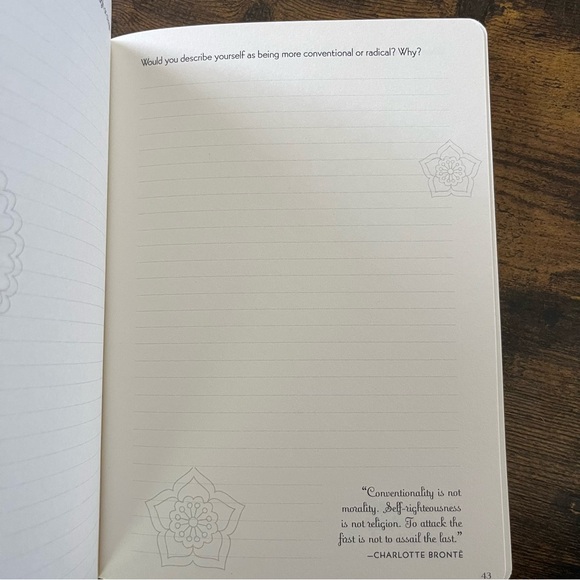 Would you describe yourself as being more conventional or radical? Why?
“Conventionality is not
morality. Self-righteousness
is not religion. To attack the
fast is not to assail the last.”
—CHARLOTTE BRONTË
43